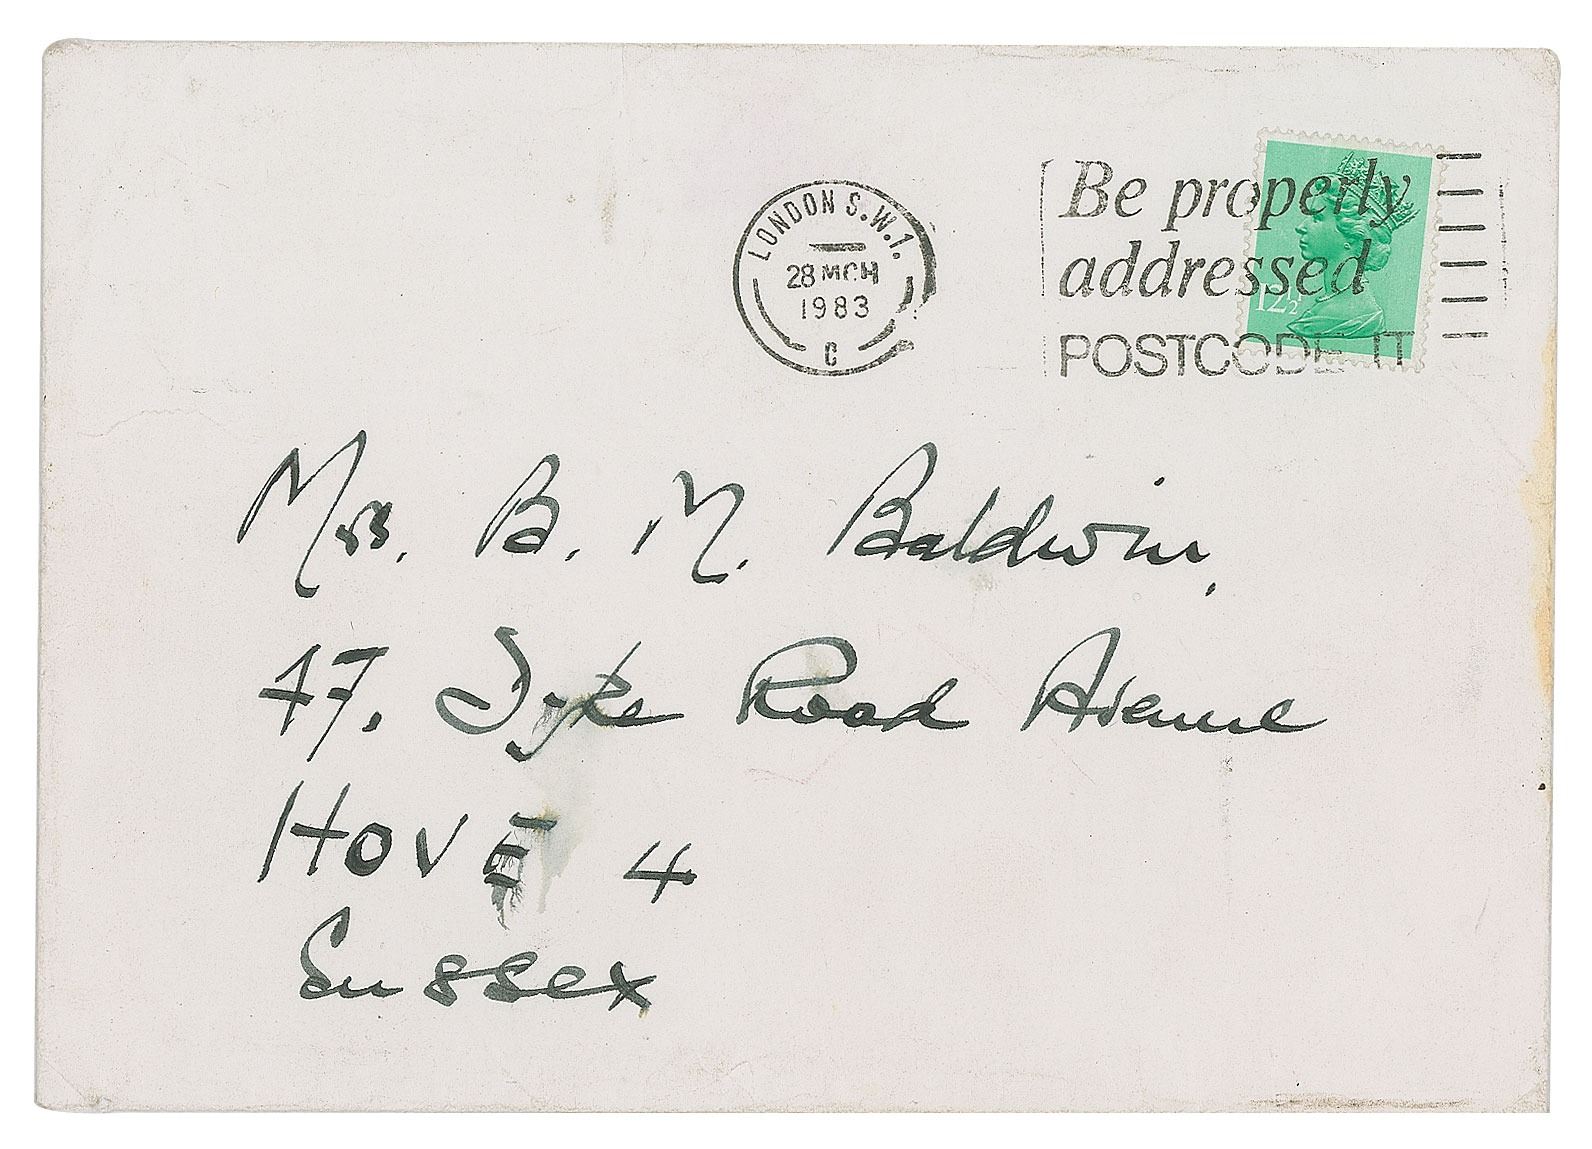 LONDON S.W.1.
28 MCH
1983
C
Be properly
addressed
POSTCODE IT
12½
Mrs. B. M. Baldwin,
47, Dyke Road Avenue
HOVE 4
Sussex